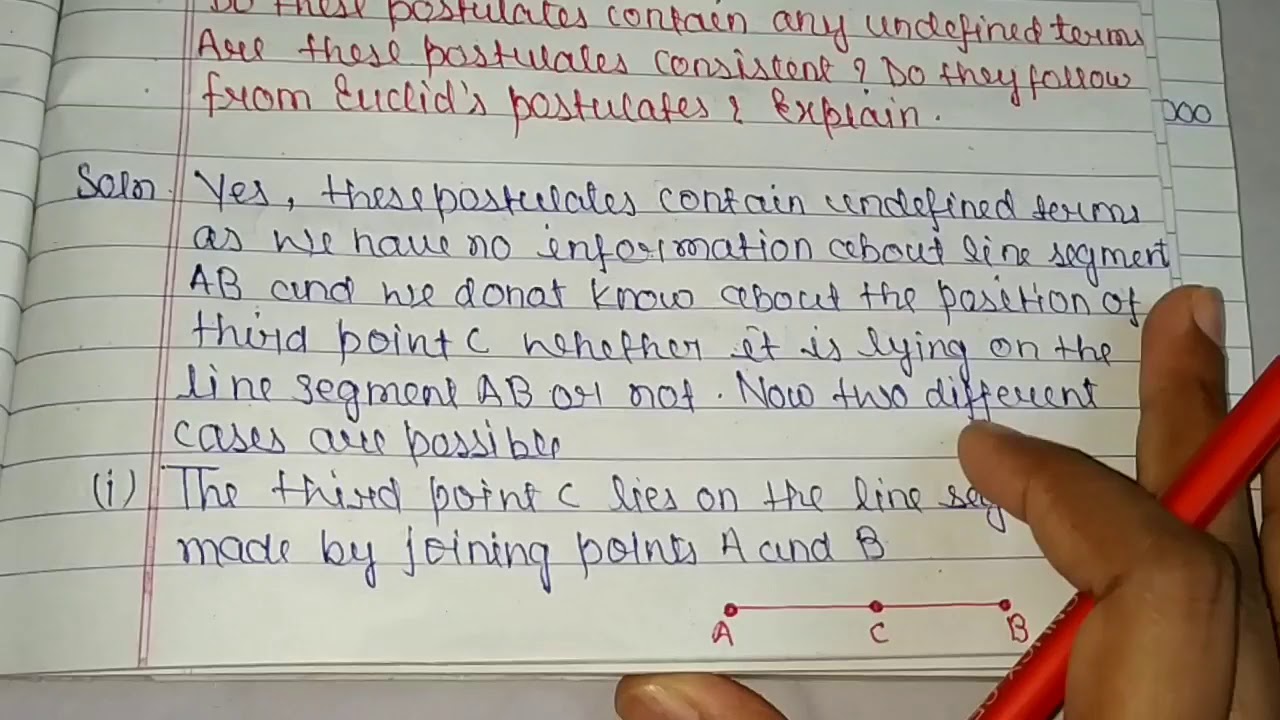 Do these postulates contain any undefined terms
Are these postulates consistent? Do they follow
from Euclid's postulates? Explain.
Soln. Yes, these postulates contain undefined terms
as we have no information about line segment
AB and we donot know about the position of
third point C whether it is lying on the
line segment AB or not. Now two different
cases are possible
(i) The third point C lies on the line seg
made by joining points A and B
A C B